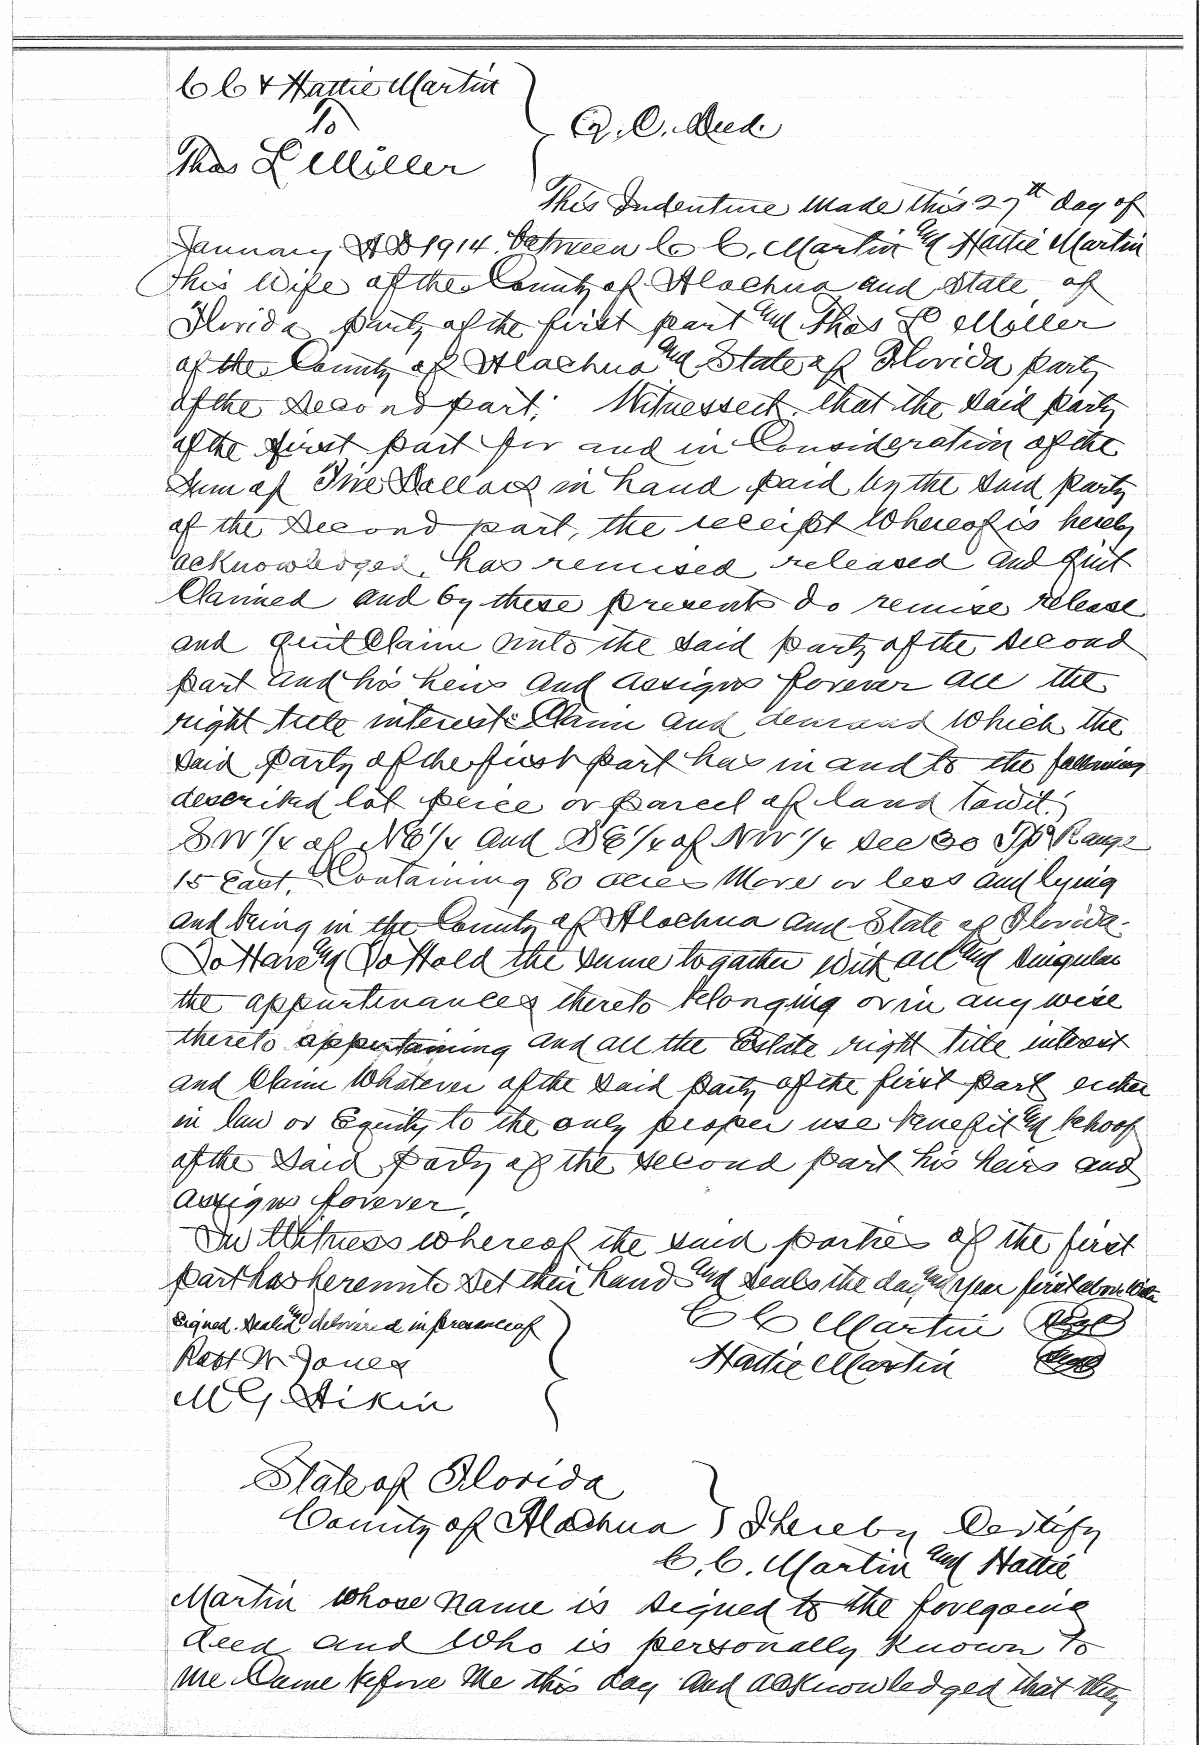 C C & Hattie Martin
To
Q. C. Deed.
Thos L Miller
This Indenture made this 27th day of
January A D 1914 between C C. Martin and Hattie Martin
his Wife of the County of Alachua and State of
Florida party of the first part and Thos L Miller
of the County of Alachua and State of Florida party
of the second part; Witnesseth, that the said party
of the first part for and in Consideration of the
Sum of Five Dollars in hand paid by the said party
of the second part, the receipt whereof is hereby
acknowledged, has remised released and quit
Claimed and by these presents do remise release
and quit Claim unto the said party of the second
part and his heirs and assigns forever all the
right title interest Claim and demand which the
said party of the first part has in and to the following
described lot peice or parcel of land towit;
SW 1/4 of NE 1/4 and SE 1/4 of NW 1/4 Sec 30 Tp Range
15 East, Containing 80 acres more or less and lying
and being in the County of Alachua and State of Florida.
To Have and To Hold the same togather with all and singular
the appurtenances thereto belonging or in any wise
thereto appertaining and all the Estate right title interest
and Claim whatever of the said party of the first part either
in law or Equity to the only proper use benefit and behoof
of the said party of the second part his heirs and
assigns forever,
In Witness whereof the said parties of the first
part has hereunto set their hands and seals the day and year first above
Signed. Sealed and delivered in presence of
C C Martin Seal
Robt W Jones
Hattie Martin Seal
M G Aikin
State of Florida
County of Alachua I hereby Certify
C. C. Martin and Hattie
Martin whose name is signed to the foregoing
deed and who is personally known to
me Came before me this day and acknowledged that they